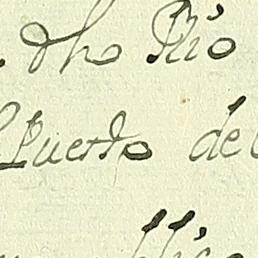 dho Rio
Puerto de